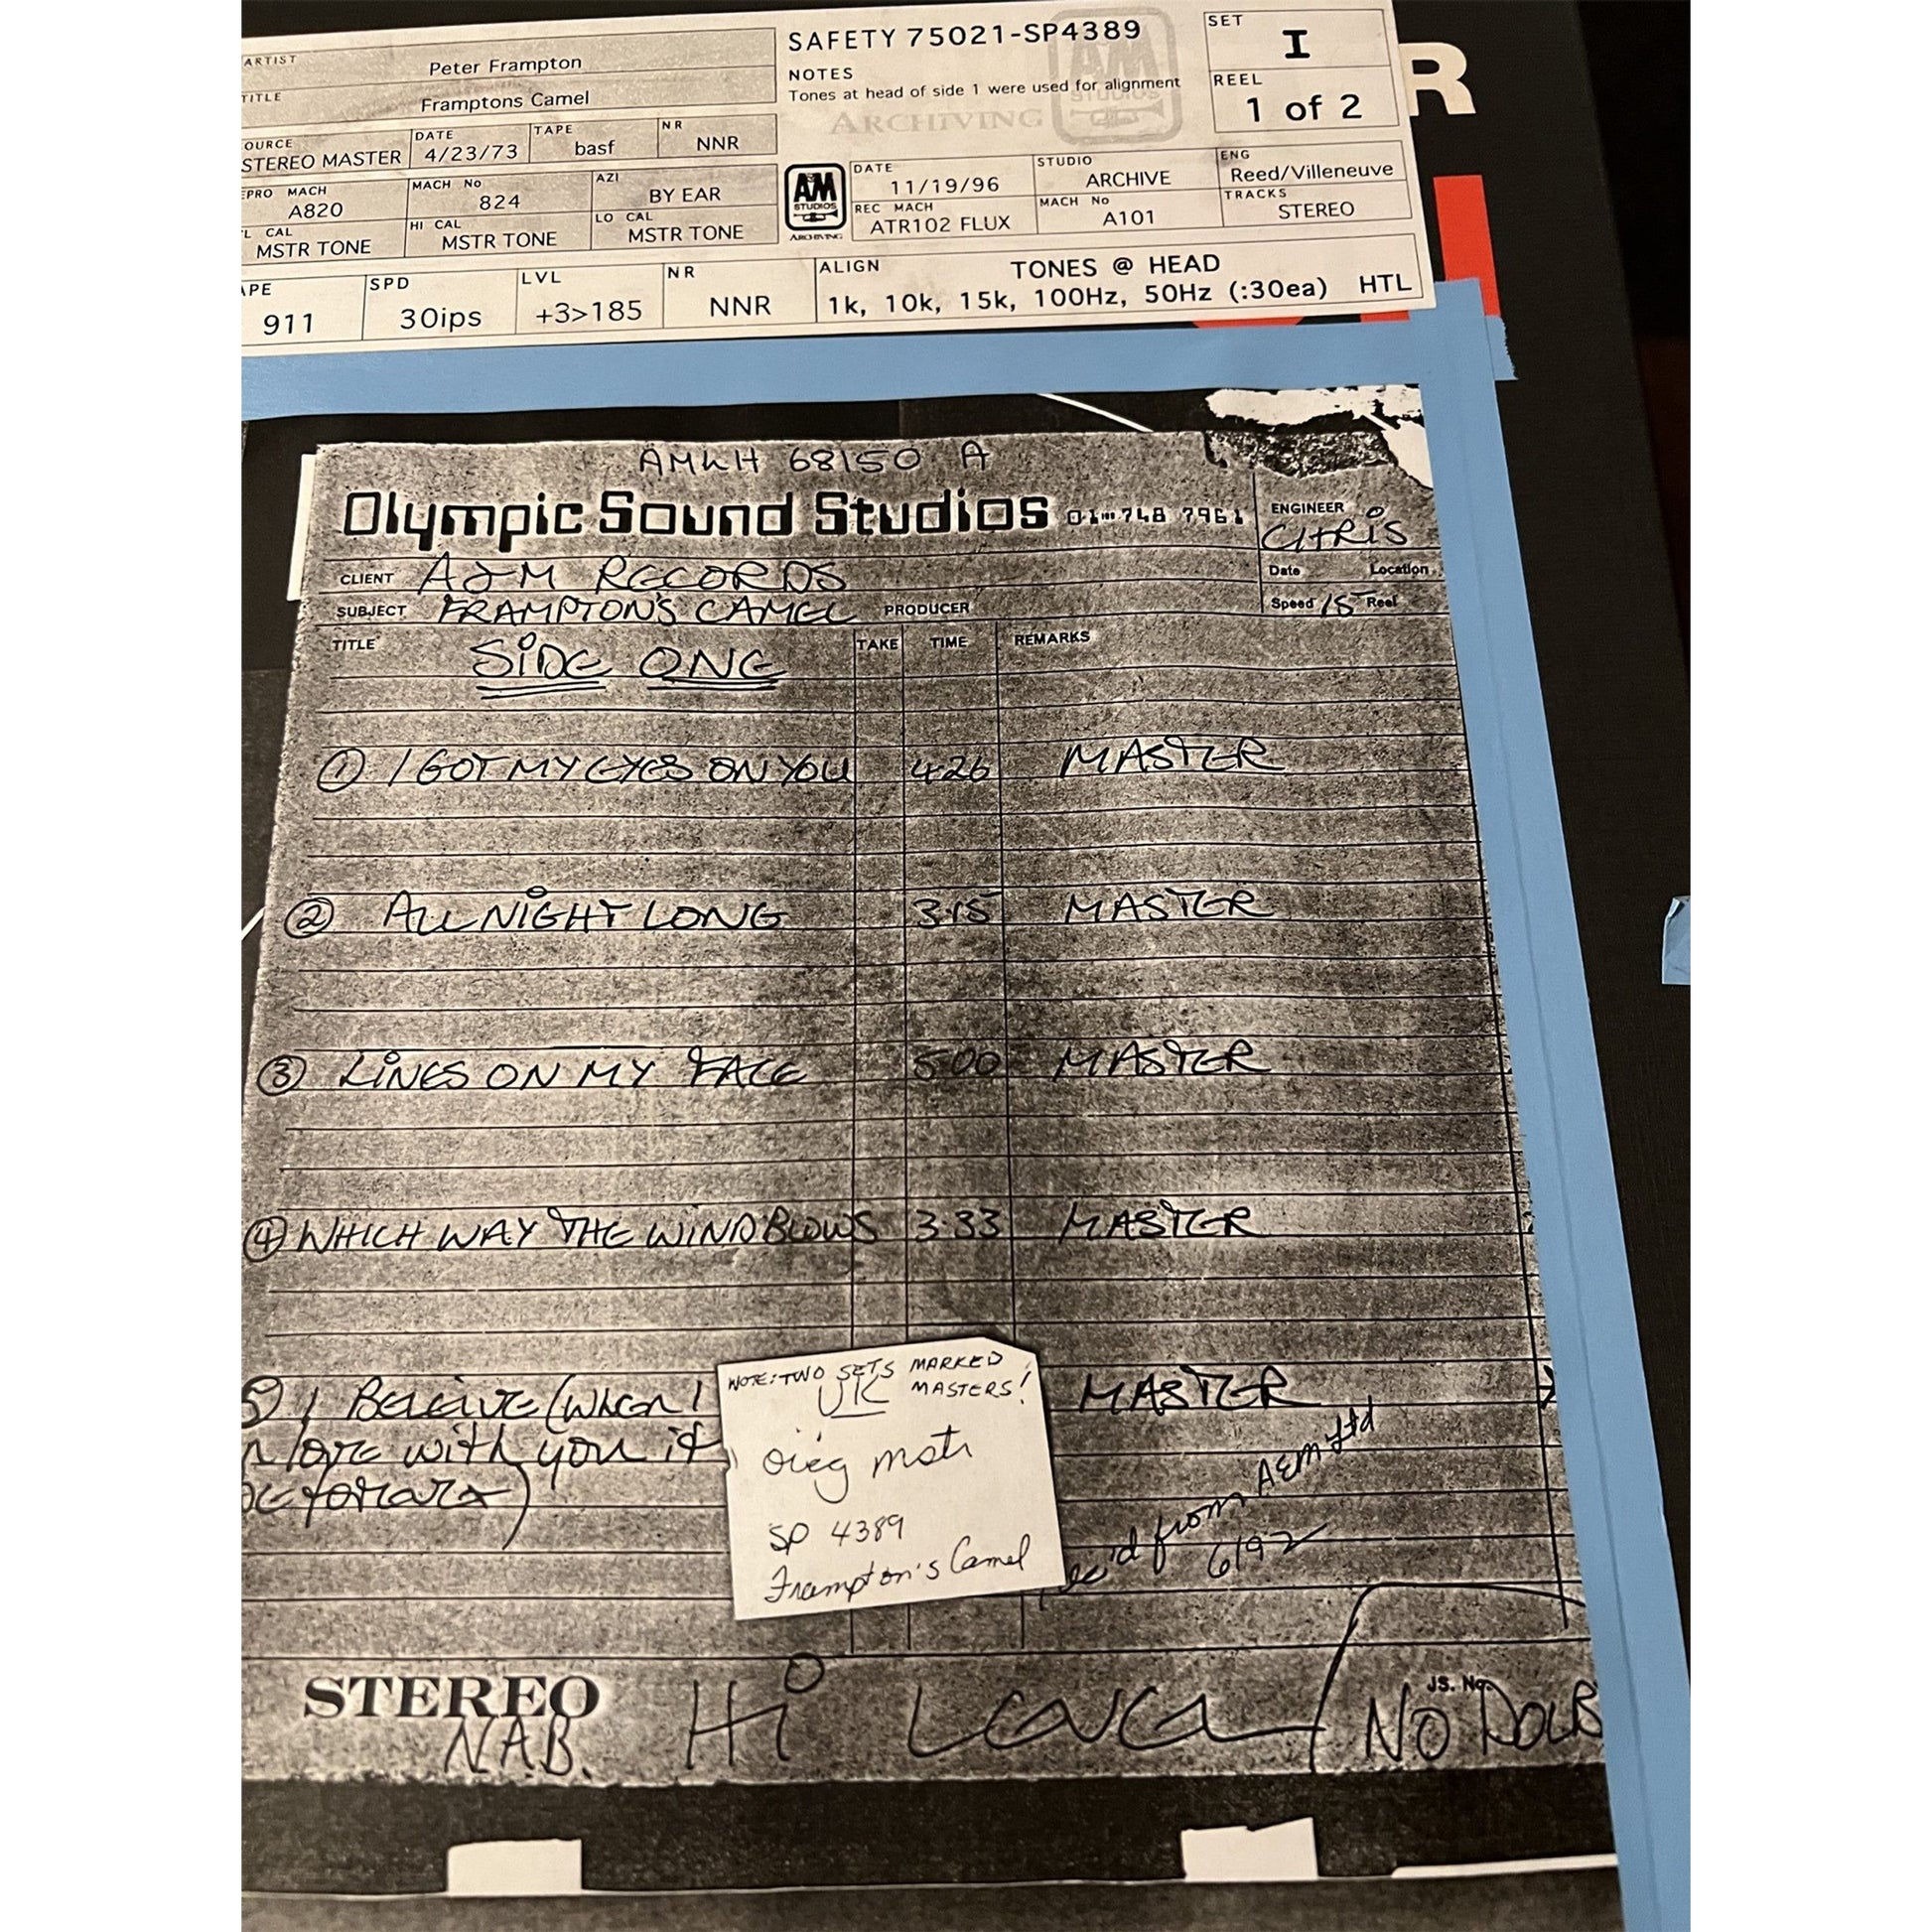 ARTIST Peter Frampton
TITLE Framptons Camel
SAFETY 75021-SP4389
NOTES
Tones at head of side 1 were used for alignment
ARCHIVING
A&M STUDIOS
SET I
REEL 1 of 2
R
OURCE STEREO MASTER DATE 4/23/73 TAPE basf NR NNR
PRO MACH A820 MACH No 824 AZI BY EAR
L CAL MSTR TONE HI CAL MSTR TONE LO CAL MSTR TONE
A&M STUDIOS ARCHIVING
DATE 11/19/96 STUDIO ARCHIVE ENG Reed/Villeneuve
REC MACH ATR102 FLUX MACH No A101 TRACKS STEREO
APE 911 SPD 30ips LVL +3>185 NR NNR ALIGN TONES @ HEAD
1k, 10k, 15k, 100Hz, 50Hz (:30ea) HTL
AMLH 68150 A
Olympic Sound Studios 01-748 7961
ENGINEER CHRIS
CLIENT A&M RECORDS
Date Location
SUBJECT FRAMPTON'S CAMEL PRODUCER
Speed 15 Reel
TITLE TAKE TIME REMARKS
SIDE ONE
① I GOT MY EYES ON YOU 4.26 MASTER
② ALL NIGHT LONG 3.15 MASTER
③ LINES ON MY FACE 5.00 MASTER
④ WHICH WAY THE WIND BLOWS 3.33 MASTER
5 I BELIEVE (WHEN I MASTER
N LOVE with you it
NOTE: TWO SETS MARKED
UK MASTERS!
orig mstr
SP 4389
Frampton's Camel
Rec'd from A&M Ltd
6/92
STEREO
NAB.
Hi Level
JS. No.
NO DOLB